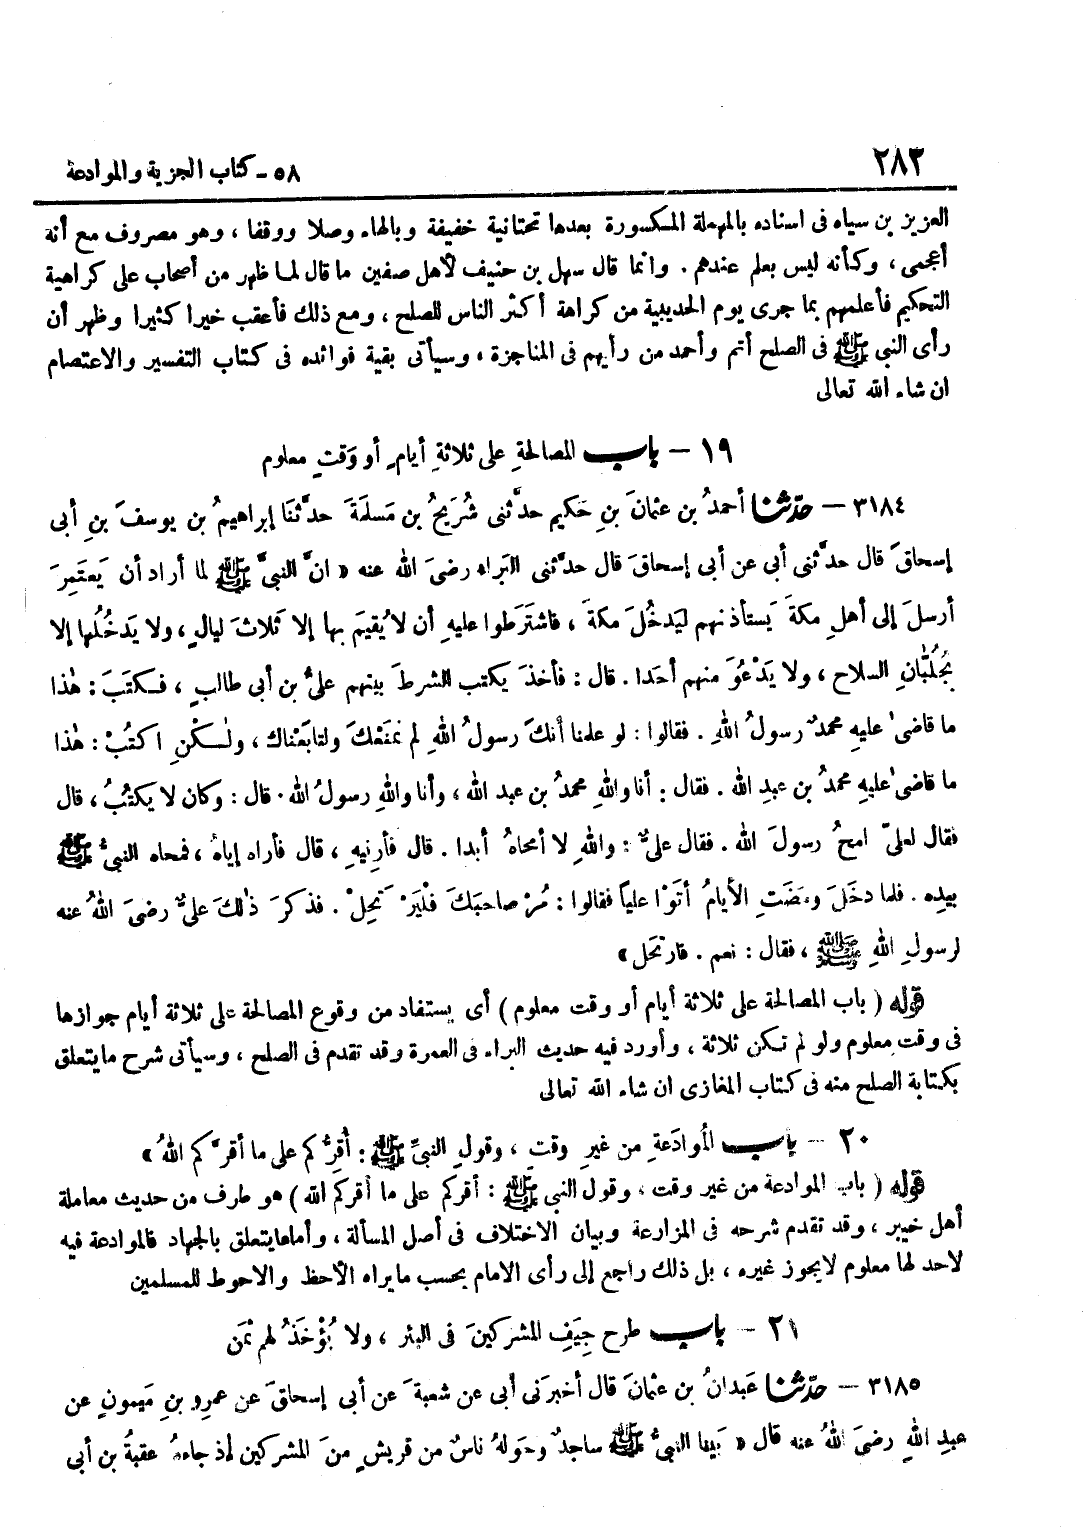 ٢٨٣
٥٨ - كتاب الجزية والموادعة
العزيز بن سياه فى اسناده بالمهملة المكسورة بعدها تحتانية خفيفة وبالهاء وصلا ووقفا ، وهو مصروف مع أنه
أعجمى ، وكأنه ليس بعلم عندهم . وانما قال سهل بن حنيف لأهل صفين ما قال لما ظهر من أصحاب على كراهية
التحكيم فأعلمهم بما جرى يوم الحديبية من كراهة أكثر الناس للصلح ، ومع ذلك فأعقب خيرا كثيرا وظهر أن
رأى النبى ﷺ فى الصلح أتم وأحمد من رأيهم فى المناجزة ، وسيأتى بقية فوائده فى كتاب التفسير والاعتصام
ان شاء الله تعالى
١٩ - باب المصالحةِ على ثلاثةِ أيامٍ أو وَقتٍ معلوم
٣١٨٤ - حدّثنا أحمدُ بن عثمانَ بنِ حَكيم حدَّثنى شُرَيحُ بن مَسلمَةَ حدَّثنَا إبراهيمُ بن يوسفَ بنِ أبى
إسحاقَ قال حدَّثنى أبى عن أبى إسحاقَ قال حدَّثنى البَراء رضىَ الله عنه « انَّ النبىَّ ﷺ لما أراد أن يَعتَمِرَ
أرسلَ إلى أهلِ مكةَ يَستأذنهم ليَدخُلَ مكةَ ، فاشتَرَطوا عليهِ أن لا يُقيمَ بها إلا ثَلاثَ ليالٍ ، ولا يَدخُلُها إلا
بجُلُبّانِ السلاح ، ولا يَدْعُوَ منهم أحَدا . قال : فأخذَ يكتب الشرطَ بينهم علىُّ بن أبى طالبٍ ، فكتَبَ : هٰذا
ما قاضىٰ عليهِ محمدٌ رسولُ اللهِ . فقالوا : لو علمنا أنكَ رسولُ اللهِ لم نمنَعْكَ ولتابَعْناك ، ولٰكنِ اكتُبْ : هٰذا
ما قاضىٰ عليهِ محمدُ بن عبدِ الله . فقال : أنا واللهِ محمدُ بن عبد الله ، وأنا واللهِ رسولُ الله . قال : وكان لا يكتُبُ ، قال
فقال لعلىّ امحُ رسولَ الله . فقال علىٌّ : واللهِ لا أمحاهُ أبدا . قال فأرِنيهِ ، قال فأراه إياهُ ، فمحاه النبىُّ ﷺ
بيدِه . فلما دخَلَ ومَضَتِ الأيامُ أتَوْا علياً فقالوا : مُرْ صاحبَكَ فلْيَرْتحِلْ . فذكرَ ذٰلكَ علىٌّ رضىَ اللهُ عنه
لرسولِ اللهِ ﷺ ، فقال : نعم . فارتحَل »
قوله ( باب المصالحة على ثلاثة أيام أو وقت معلوم ) أى يستفاد من وقوع المصالحة على ثلاثة أيام جوازها
فى وقت معلوم ولو لم تكن ثلاثة ، وأورد فيه حديث البراء فى العمرة وقد تقدم فى الصلح ، وسيأتى شرح ما يتعلق
بكتابة الصلح منه فى كتاب المغازى ان شاء الله تعالى
٢٠ - باب المُوادَعةِ من غيرِ وقتٍ ، وقولِ النبىِّ ﷺ : أُقِرُّكم على ما أقرَّكم اللهُ »
قوله ( باب الموادعة من غير وقت ، وقول النبى ﷺ : أقركم على ما أقركم الله ) هو طرف من حديث معاملة
أهل خيبر ، وقد تقدم شرحه فى المزارعة وبيان الاختلاف فى أصل المسألة ، وأما ما يتعلق بالجهاد فالموادعة فيه
لاحد لها معلوم لايجوز غيره ، بل ذلك راجع إلى رأى الامام بحسب ما يراه الأحظ والاحوط للمسلمين
٢١ - باب طرح جِيَفِ المشركينَ فى البئر ، ولا يُؤْخَذُ لهم ثمَن
٣١٨٥ - حدّثنا عَبدانُ بن عثمانَ قال أخبرَنى أبى عن شعبةَ عن أبى إسحاقَ عن عمرِو بنِ مَيمونٍ عن
عبدِ اللهِ رضىَ اللهُ عنه قال « بَينا النبىُّ ﷺ ساجدٌ وحَولهُ ناسٌ من قريشٍ منَ المشركين إذ جاءهُ عقبةُ بن أبى